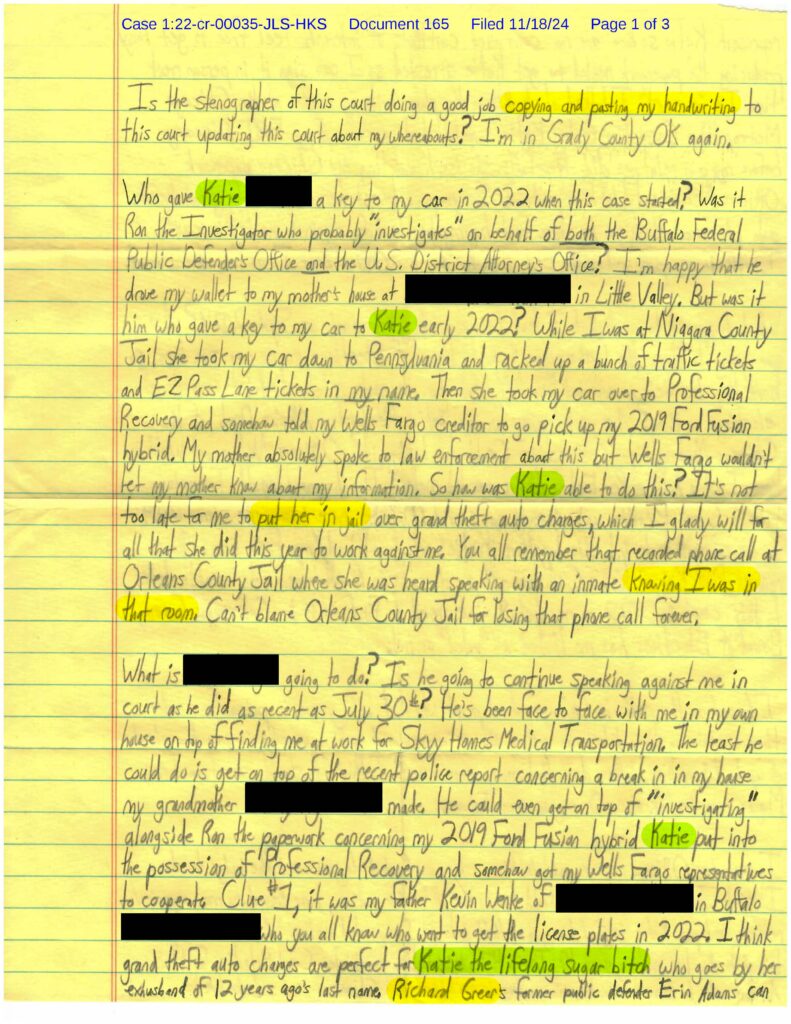 Case 1:22-cr-00035-JLS-HKS Document 165 Filed 11/18/24 Page 1 of 3
Is the stenographer of this court doing a good job copying and pasting my handwriting to
this court updating this court about my whereabouts? I'm in Grady County OK again.
Who gave Katie a key to my car in 2022 when this case started? Was it
Ron the Investigator who probably "investigates" on behalf of both the Buffalo Federal
Public Defender's Office and the U.S. District Attorney's Office? I'm happy that he
drove my wallet to my mother's house at in Little Valley. But was it
him who gave a key to my car to Katie early 2022? While I was at Niagara County
Jail she took my car down to Pennsylvania and racked up a bunch of traffic tickets
and EZ Pass Lane tickets in my name. Then she took my car over to Professional
Recovery and somehow told my Wells Fargo creditor to go pick up my 2019 Ford Fusion
hybrid. My mother absolutely spoke to law enforcement about this but Wells Fargo wouldn't
let my mother know about my information. So how was Katie able to do this? It's not
too late for me to put her in jail over grand theft auto charges, which I glady will for
all that she did this year to work against me. You all remember that recorded phone call at
Orleans County Jail where she was heard speaking with an inmate knowing I was in
that room. Can't blame Orleans County Jail for losing that phone call forever.
What is going to do? Is he going to continue speaking against me in
court as he did as recent as July 30th? He's been face to face with me in my own
house on top of finding me at work for Skyy Homes Medical Transportation. The least he
could do is get on top of the recent police report concerning a break in in my house
my grandmother made. He could even get on top of "investigating"
alongside Ron the paperwork concerning my 2019 Ford Fusion hybrid Katie put into
the possession of Professional Recovery and somehow got my Wells Fargo representatives
to cooperate. Clue #1, it was my father Kevin Wenke of in Buffalo
who you all know who went to get the license plates in 2022. I think
grand theft auto charges are perfect for Katie the lifelong sugar bitch who goes by her
exhusband of 12 years ago's last name. Richard Greer's former public defender Erin Adams can